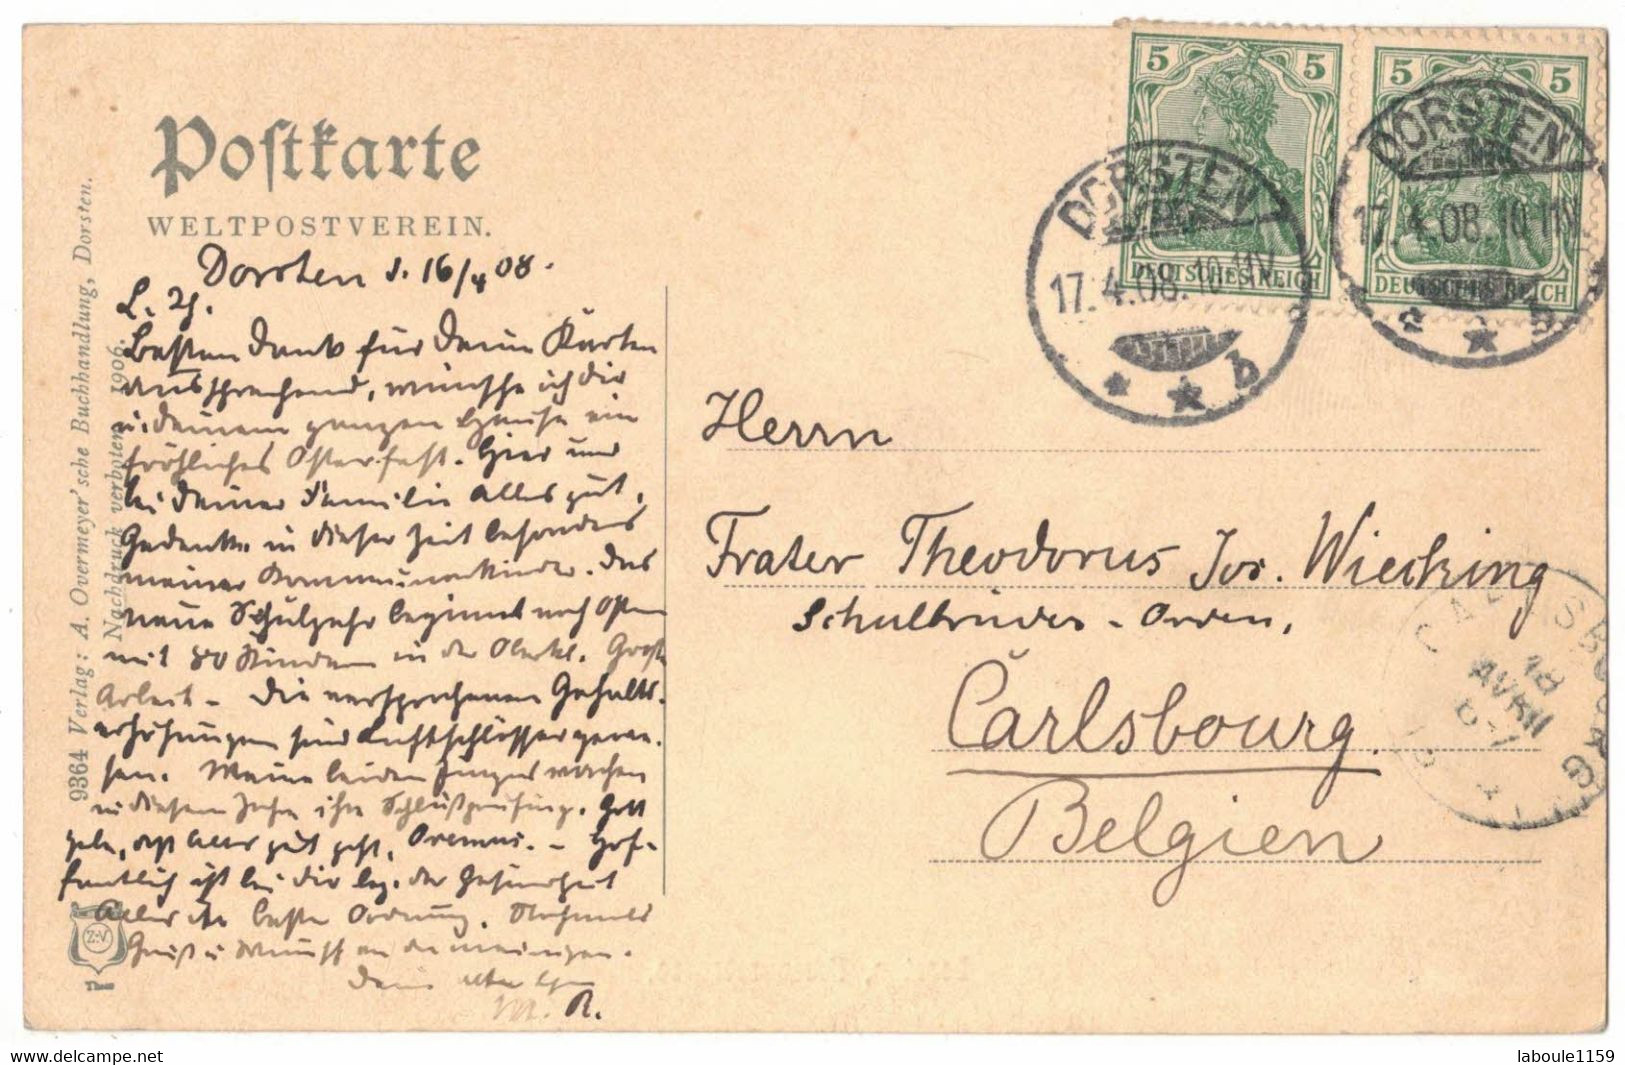 Postkarte
WELTPOSTVEREIN.
9364 Verlag: A. Overmeyer'sche Buchhandlung, Dorsten.
Nachdruck verboten 1906.
Dorsten d. 16/4 08.
Besten Dank für Deine Karten
wünsche ich Dir
u. Deinem ganzen Hause ein
fröhliches Osterfest. Hier und
bei Deiner Familie Alles gut.
Gedenke in dieser Zeit besonders
meiner Kommunionkinder. Das
neue Schuljahr beginnt nach Ostern
mit 80 Kindern in der Oberkl. Große
Arbeit - Die versprochenen Gehalts-
erhöhungen sind Luftschlösser gewe-
sen. Meine beiden Jungens machen
in diesem Jahre ihre Schlußprüfung. Gott
gebe, daß Alles gut geht. Oremus. - Hof-
fentlich ist bei Dir bez. der Gesundheit
Alles in bester Ordnung. Nochmals
Gruß u Wunsch
Dein
M. R.
5 5 5 5
DEUTSCHES REICH DEUTSCHES REICH
DORSTEN
17.4.08.10-11V
* * b
DORSTEN
17.4.08.10-11V
Herrn
Frater Theodorus Jos. Wiesking
Schulbrüder-Orden,
Carlsbourg.
Belgien
CARLSBOURG
18
AVRIL
Z.V.
laboule1159